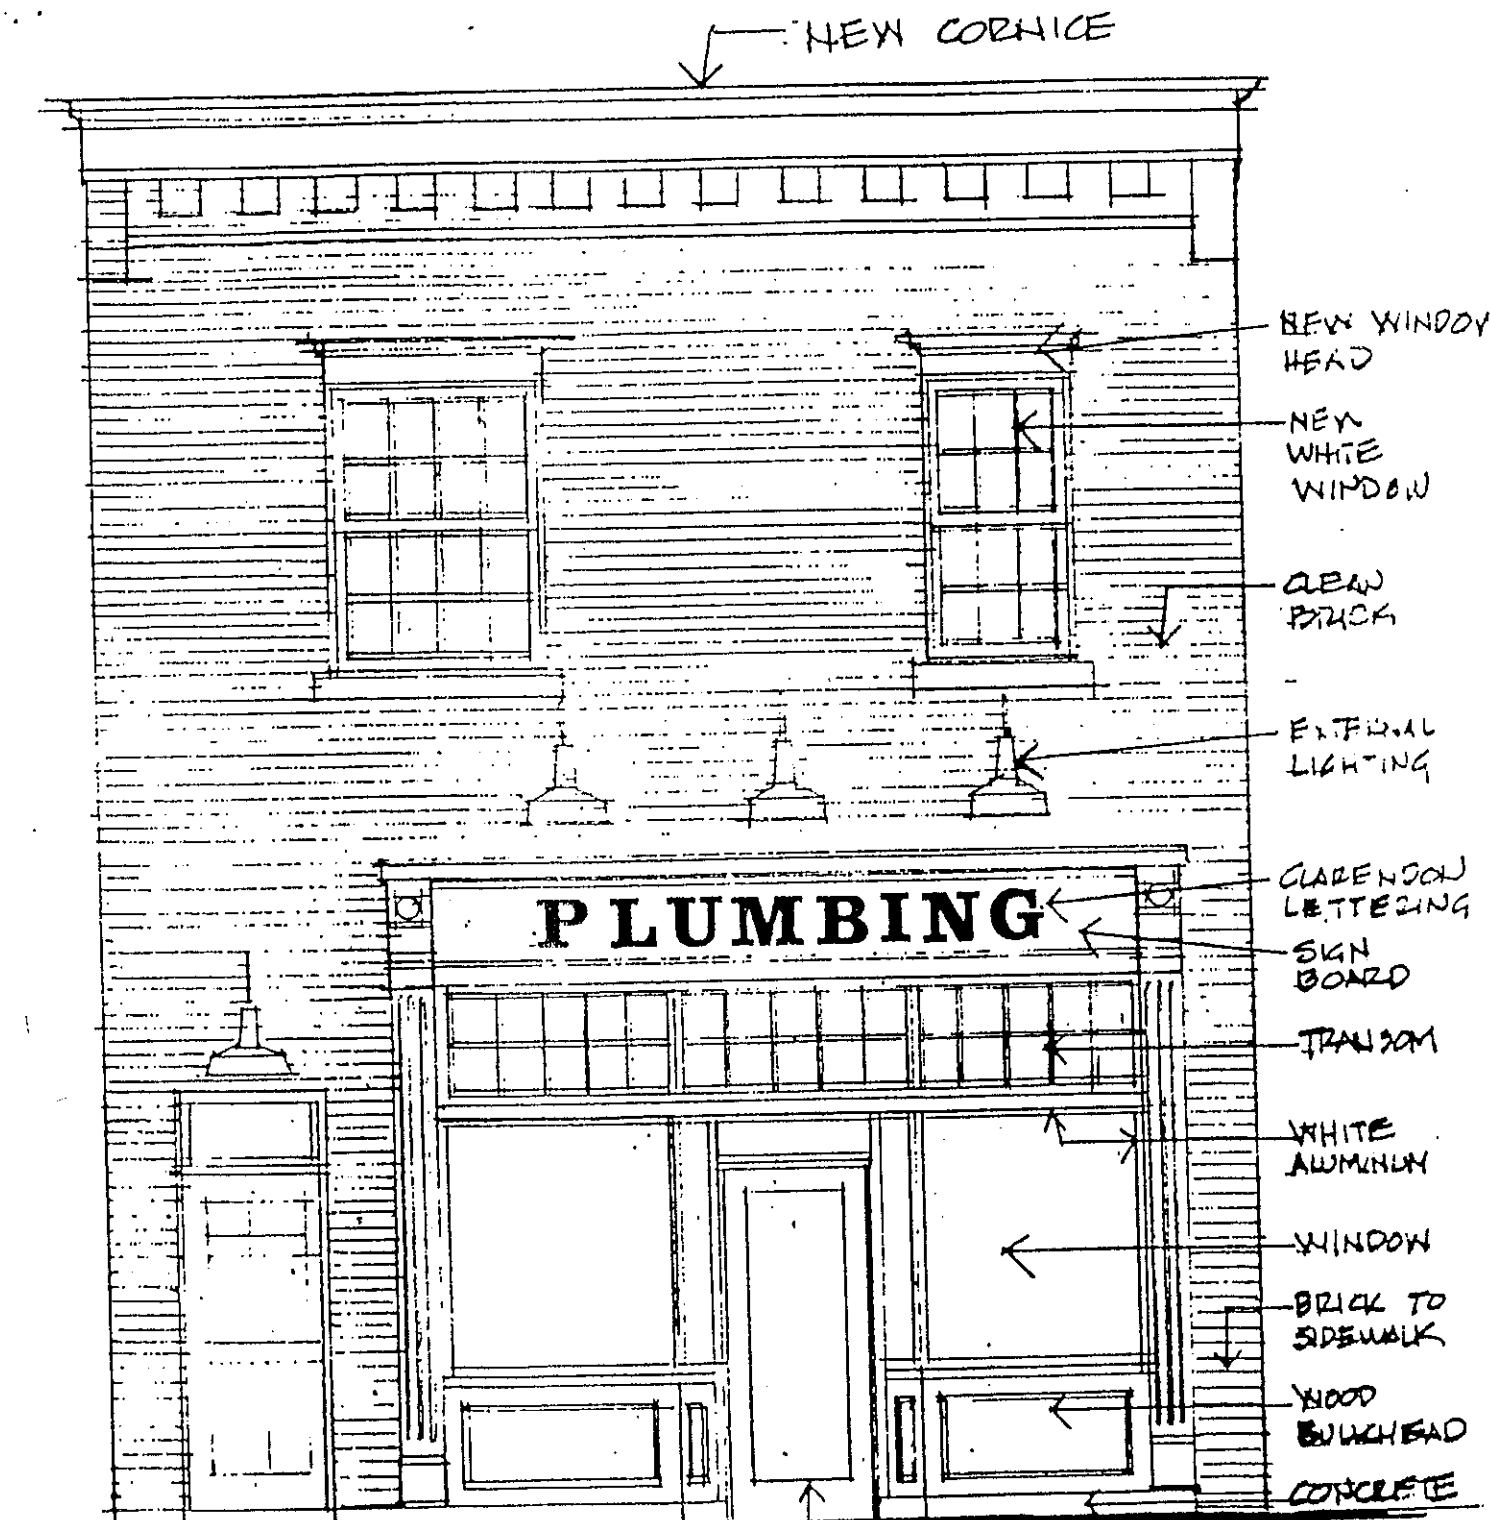 NEW CORNICE
NEW WINDOW
HEAD
NEW
WHITE
WINDOW
CLEAN
BRICK
EXTERNAL
LIGHTING
PLUMBING
CLARENDON
LETTERING
SIGN
BOARD
TRANSOM
WHITE
ALUMINUM
WINDOW
BRICK TO
SIDEWALK
WOOD
BULKHEAD
CONCRETE